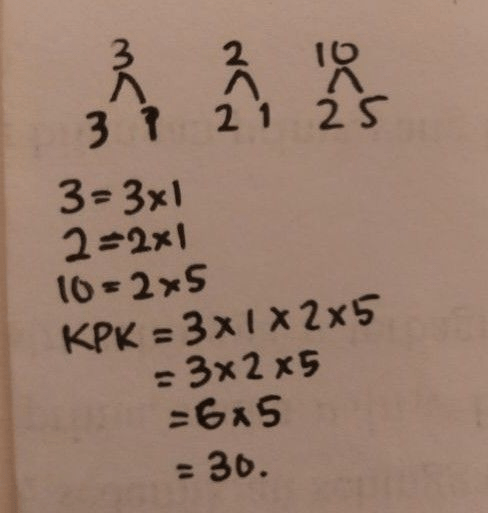 3 2 10
3 1 2 1 2 5
3 = 3 × 1
2 = 2 × 1
10 = 2 × 5
KPK = 3 × 1 × 2 × 5
= 3 × 2 × 5
= 6 × 5
= 30.